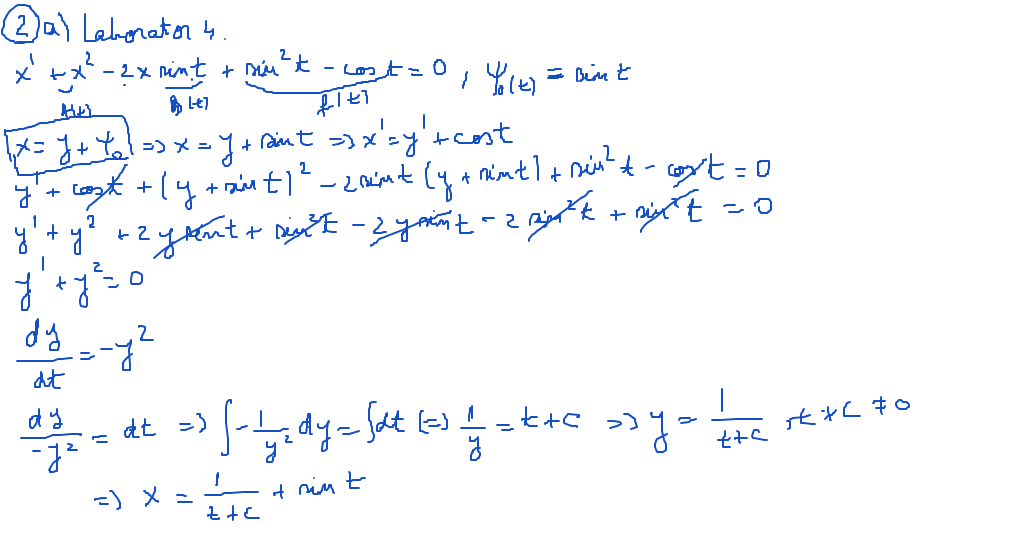 2) a) Laborator 4.
x' + x² - 2x sin t + sin² t - cos t = 0, φ₀(t) = sin t
A(t) B(t) f(t)
x = y + φ₀ => x = y + sin t => x' = y' + cos t
y' + cos t + (y + sin t)² - 2 sin t (y + sin t) + sin² t - cos t = 0
y' + y² + 2y sin t + sin² t - 2y sin t - 2 sin² t + sin² t = 0
y' + y² = 0
dy/dt = -y²
dy/-y² = dt => ∫ -1/y² dy = ∫ dt (=) 1/y = t + C => y = 1/(t+C), t + C ≠ 0
=> x = 1/(t+C) + sin t